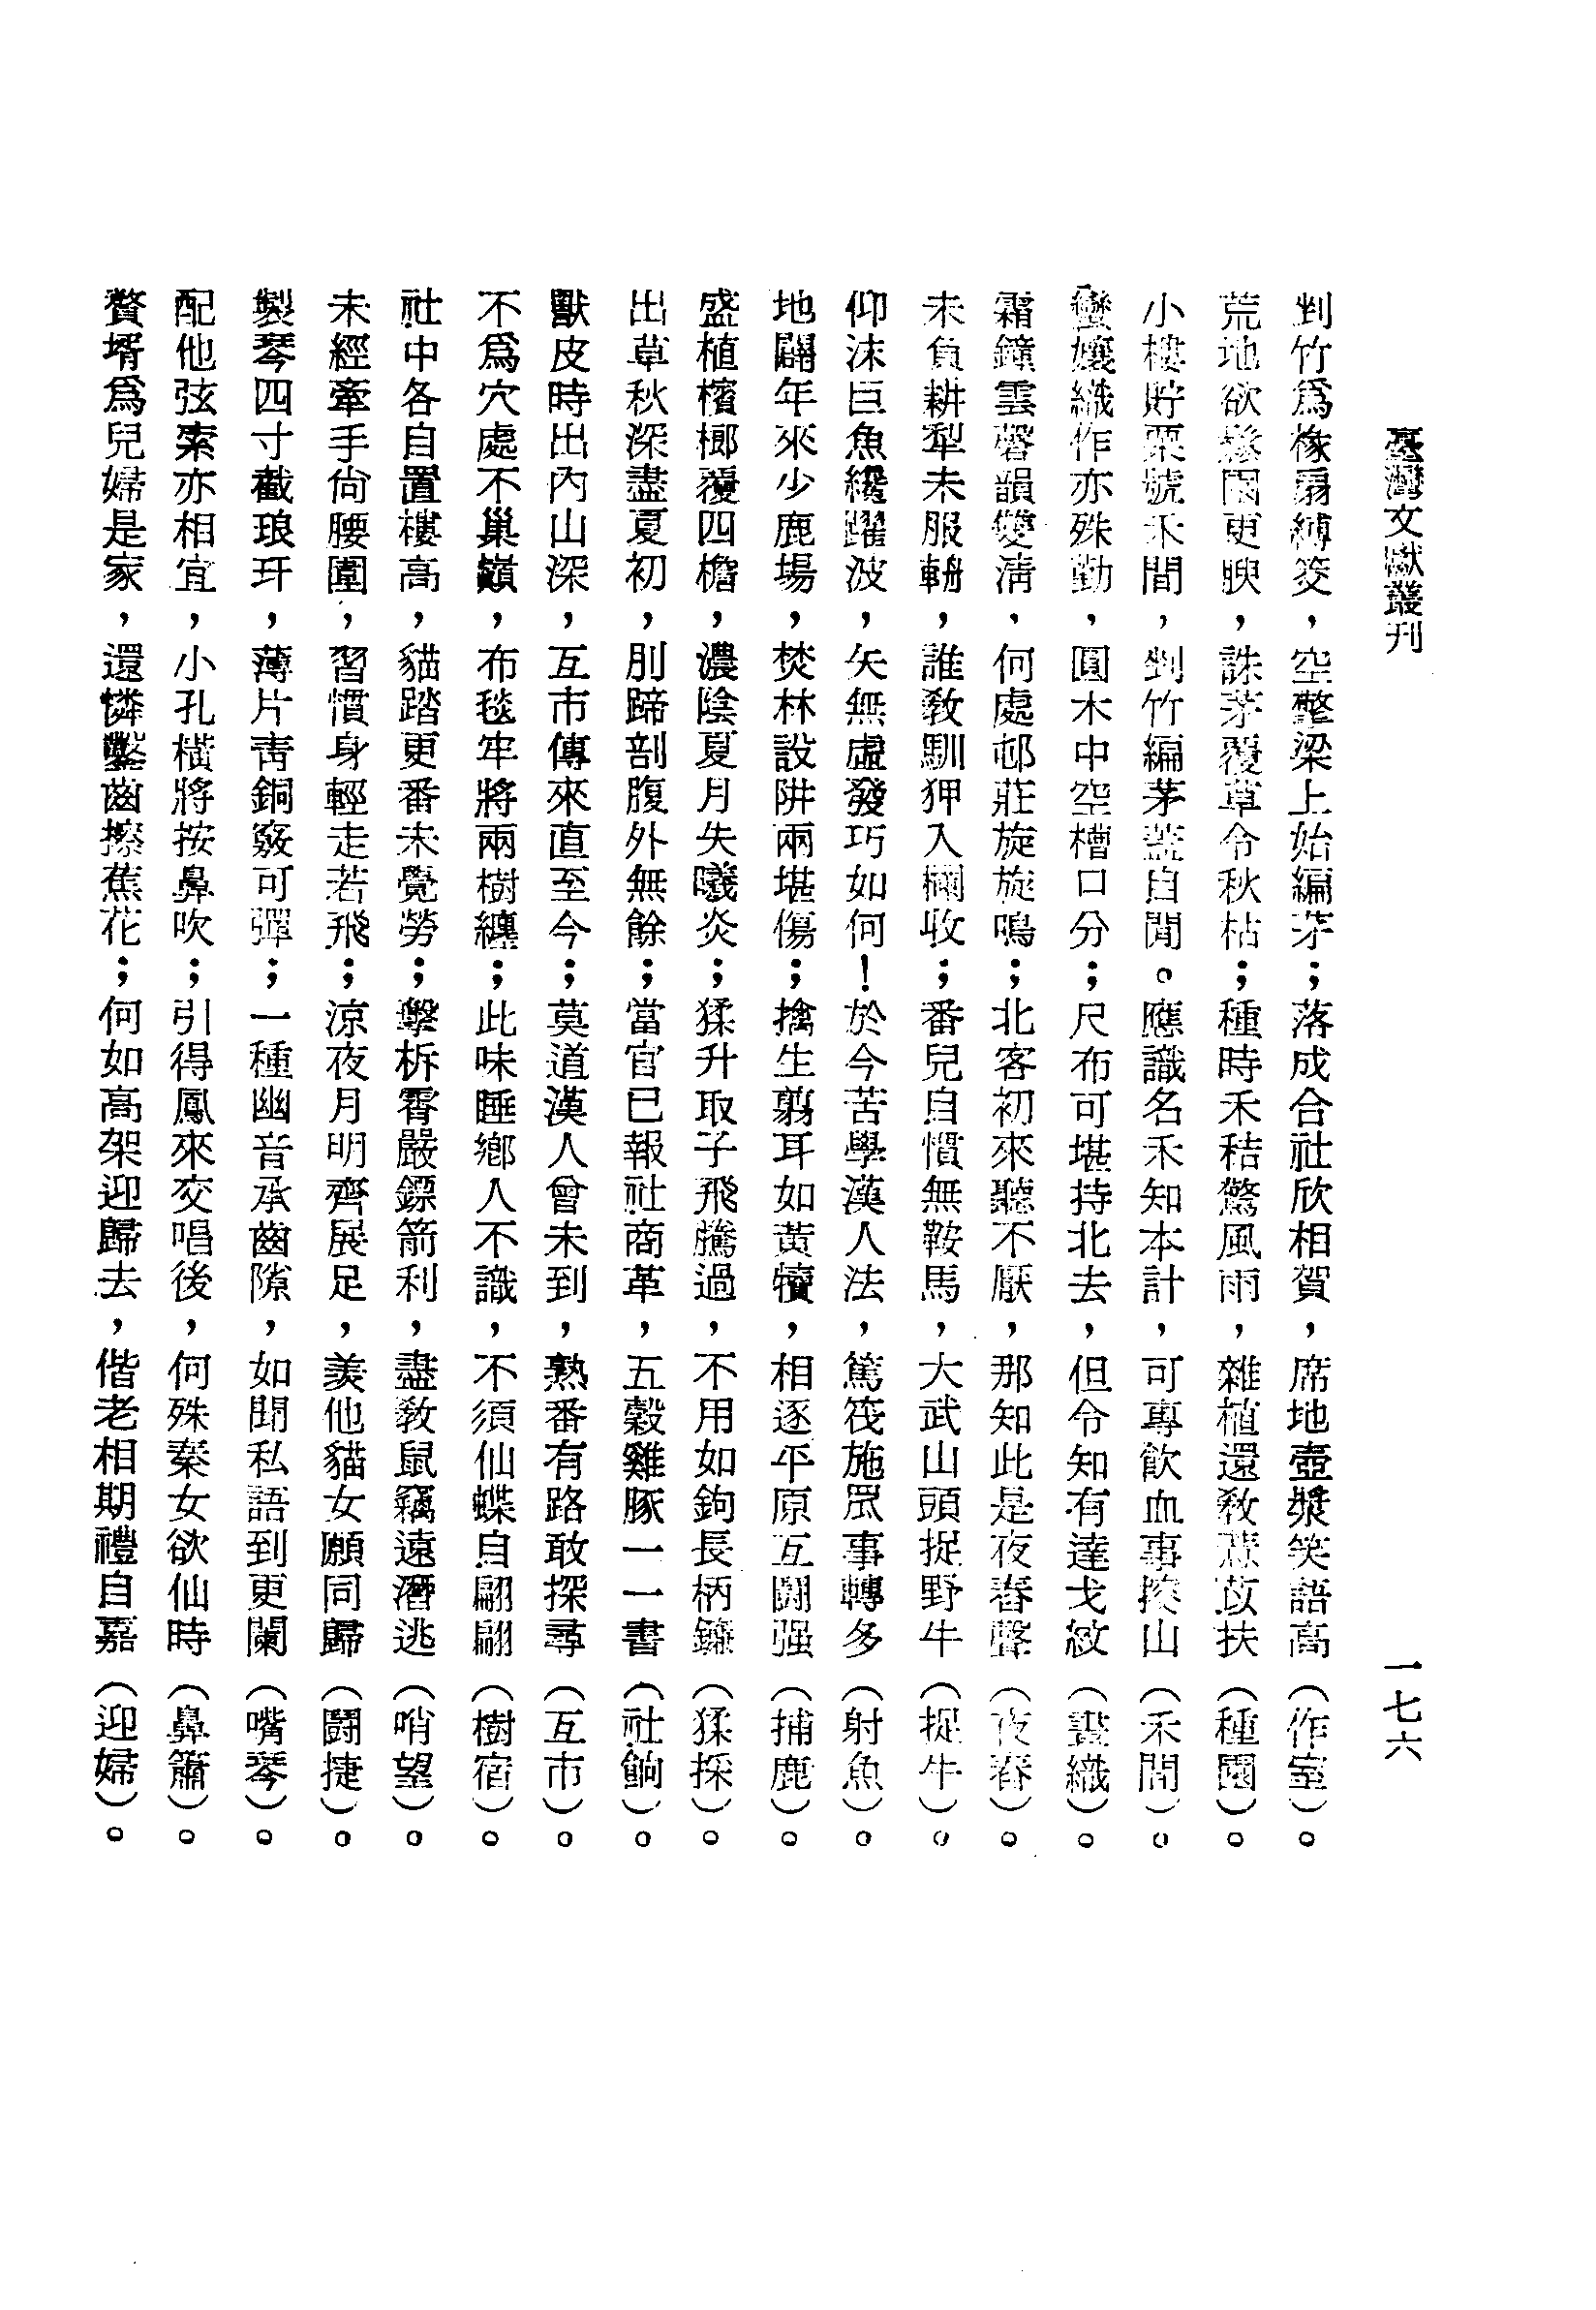 臺灣文獻叢刊
一七六
剉竹爲椽扇縛筊，空擎梁上始編茅；落成合社欣相賀，席地壺漿笑語高（作室）。
荒地欲墾園更腴，誅茅覆草令秋枯；種時禾秸驚風雨，雜植還敎薏苡扶（種園）。
小樓貯粟號禾間，剉竹編茅蓋自閒。應識名禾知本計，可專飮血事探山（禾間）。
蠻孃織作亦殊勤，圓木中空槽口分；尺布可堪持北去，但令知有達戈紋（蠻織）。
霜鐘雲磬韻雙淸，何處邨莊旋旋鳴；北客初來聽不厭，那知此是夜舂聲（夜舂）。
未負耕犁未服輈，誰敎馴狎入欄收；番兒自慣無鞍馬，大武山頭捉野牛（捉牛）。
仰沫巨魚纔躍波，矢無虛發巧如何！於今苦學漢人法，篤筏施罛事轉多（射魚）。
地闢年來少鹿場，焚林設阱兩堪傷；擒生翦耳如黃犢，相逐平原互鬪强（捕鹿）。
盛植檳榔覆四檐，濃陰夏月失曦炎；猱升取子飛騰過，不用如鉤長柄鐮（猱採）。
出草秋深盡夏初，刖蹄剖腹外無餘；當官已報社商革，五穀雞豚一一書（社餉）。
獸皮時出內山深，互市傳來直至今；莫道漢人曾未到，熟番有路敢探尋（互市）。
不爲穴處不巢巔，布毯牢將兩樹纏；此味睡鄉人不識，不須仙蝶自翩翩（樹宿）。
社中各自置樓高，貓踏更番未覺勞；擊柝霄嚴鏢箭利，盡敎鼠竊遠潛逃（哨望）。
未經牽手尙腰圍，習慣身輕走若飛；涼夜月明齊展足，羨他貓女願同歸（鬪捷）。
製琴四寸截琅玕，薄片靑銅竅可彈；一種幽音承齒隙，如聞私語到更闌（嘴琴）。
配他弦索亦相宜，小孔橫將按鼻吹；引得鳳來交唱後，何殊秦女欲仙時（鼻簫）。
贅壻爲兒婦是家，還憐鑿齒擦蕉花；何如高架迎歸去，偕老相期禮自嘉（迎婦）。